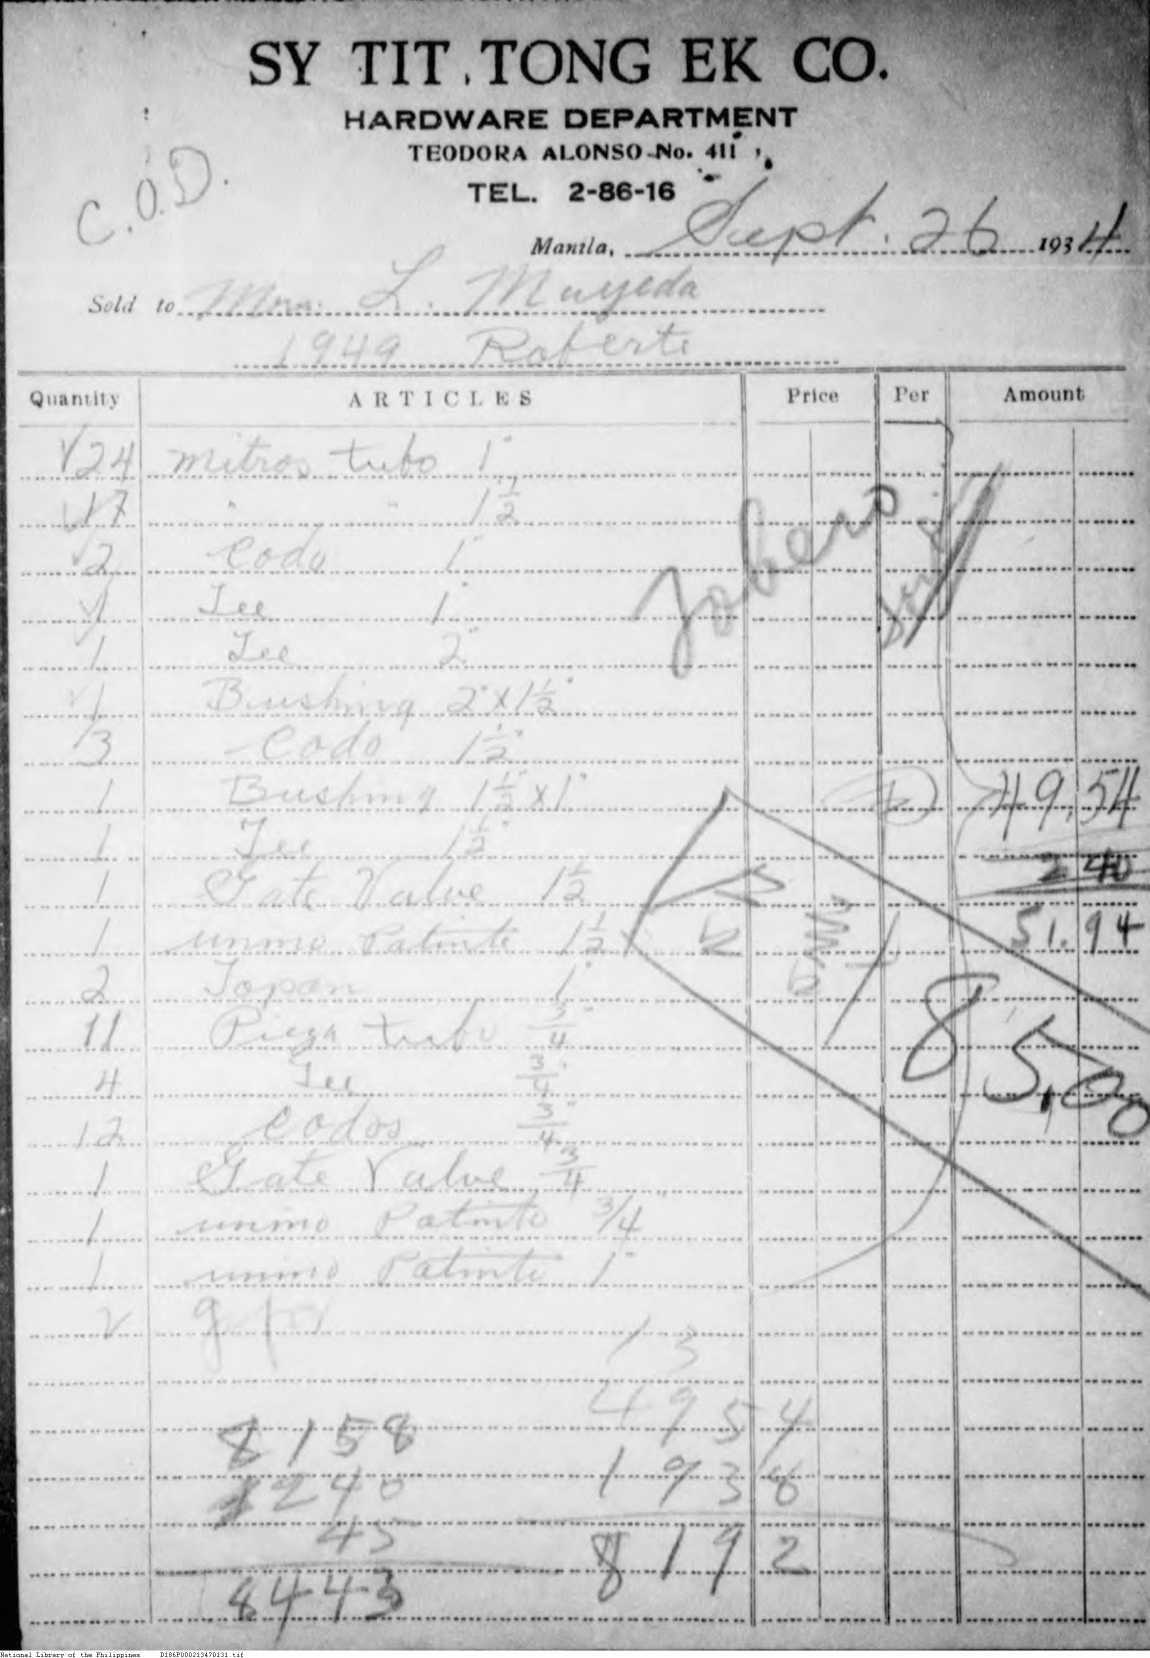 SY TIT TONG EK CO.
HARDWARE DEPARTMENT
TEODORA ALONSO No. 411
TEL. 2-86-16
C.O.D.
Manila, Sept. 26 1934
Sold to Mrs. L. Muyeda
1949 Roberts
Quantity ARTICLES Price Per Amount
24 mitros tubo 1"
17 " " 1 1/2"
2 Codo 1"
1 Tee 1"
1 Tee 2"
1 Bushing 2" x 1 1/2"
3 Codo 1 1/2"
1 Bushing 1 1/2" x 1" 49.54
1 Tee 1 1/2" 2 40
1 Gate Valve 1 1/2 51.94
1 Patinte 1 1/2
2 Tapan 1"
11 Pieza tubo 3/4"
85,00
4 Tee 3/4"
12 Codos 3/4"
1 Gate Valve 3/4
1 Patinte 3/4
1 Patinte 1"
2
13
8158 4954
240 1938
45 8192
8443
National Library of the Philippines D186P000213470131.tif